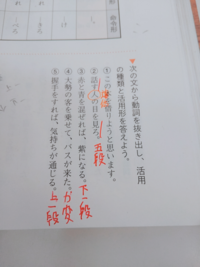 ▼次の文から動詞を抜き出し、活用
の種類と活用形を答えよう。
① この本を借りようと思います。
② 話す人の目を見ろ。
五段
③ 赤と青を混ぜれば、紫になる。
下一段
④ 大勢の客を乗せて、バスが来た。
カ変
⑤ 握手をすれば、気持ちが通じる。
上一段